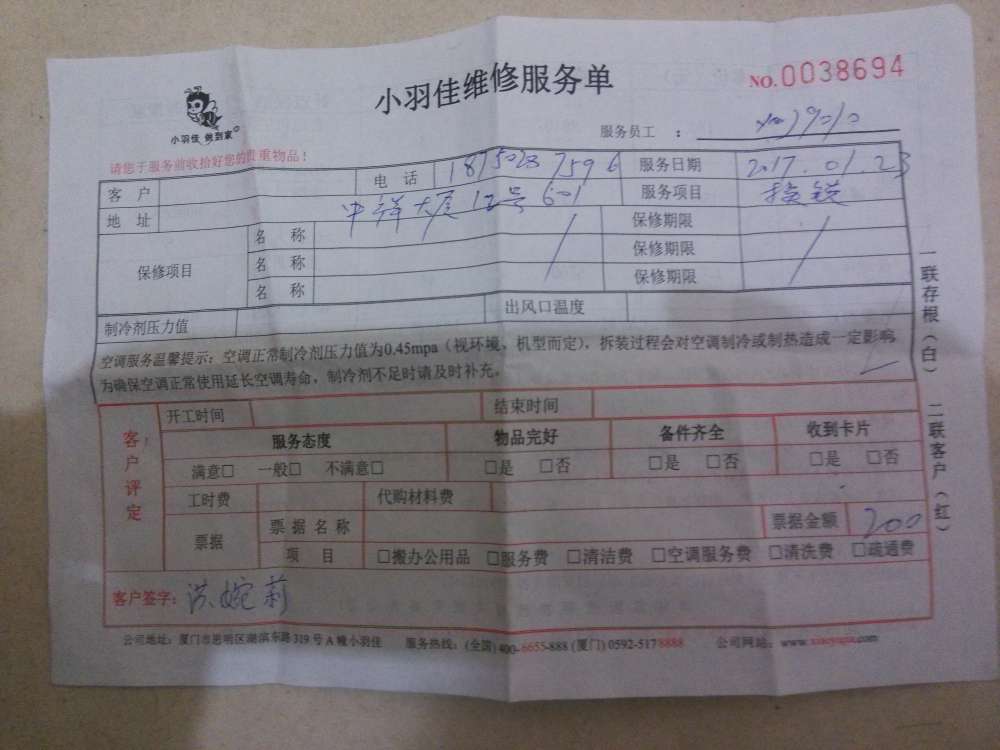 小羽佳维修服务单
NO.0038694
小羽佳 做到家
服务员工 ：
请您于服务前收拾好您的贵重物品！
客 户 电 话 18750287596 服务日期 2017.01.23
地 址 中祥大厦12号601 服务项目 换锁
保修项目 名 称 保修期限
名 称 保修期限
名 称 保修期限
制冷剂压力值 出风口温度
空调服务温馨提示：空调正常制冷剂压力值为0.45mpa（视环境、机型而定），拆装过程会对空调制冷或制热造成一定影响
为确保空调正常使用延长空调寿命，制冷剂不足时请及时补充。
客户评定
开工时间 结束时间
服务态度 物品完好 备件齐全 收到卡片
满意□ 一般□ 不满意□ □是 □否 □是 □否 □是 □否
工时费 代购材料费
票据 票据名称 票据金额 200
项 目 □搬办公用品 □服务费 □清洁费 □空调服务费 □清洗费 □疏通费
客户签字：洪婉莉
公司地址：厦门市思明区湖滨东路319号A幢小羽佳 服务热线：(全国)400-6655-888 (厦门)0592-5178888 公司网站：www.xiaoyujia.com
一联存根（白） 二联客户（红）